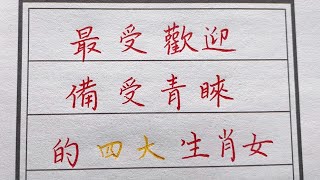 最受歡迎
備受青睞
的四大生肖女